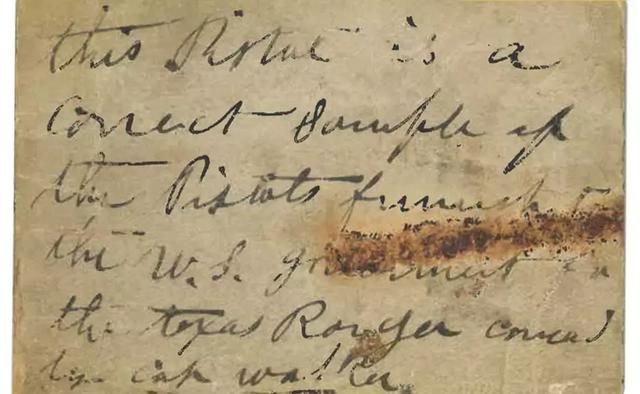 this Pistol is a
Correct Sample of
the Pistols furnish
the U.S. government
the texas Ranger
by cap walker